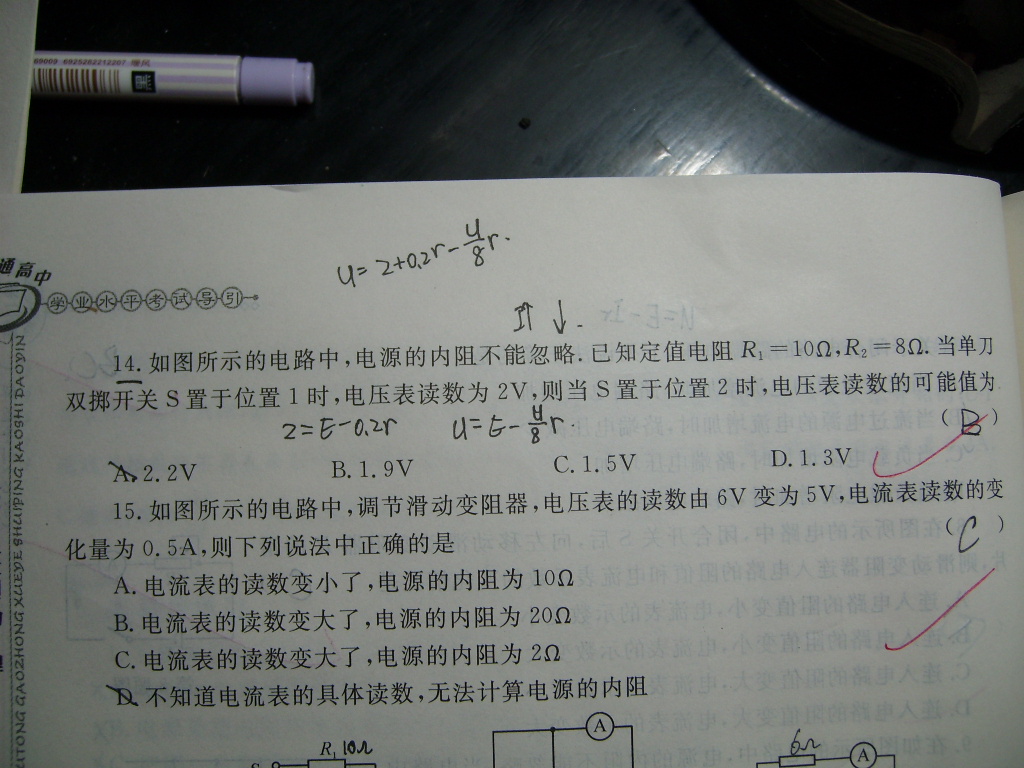 6925282212207
黑
U=2+0.2r-U/8 r.
通高中
学业水平考试导引
I↑ ↓.
14.如图所示的电路中,电源的内阻不能忽略.已知定值电阻 R₁=10Ω,R₂=8Ω.当单刀
双掷开关 S 置于位置 1 时,电压表读数为 2V,则当 S 置于位置 2 时,电压表读数的可能值为
2=E-0.2r U=E-U/8 r.
( B )
A.2.2V B.1.9V C.1.5V D.1.3V
15.如图所示的电路中,调节滑动变阻器,电压表的读数由 6V 变为 5V,电流表读数的变
化量为 0.5A,则下列说法中正确的是 ( C )
A.电流表的读数变小了,电源的内阻为 10Ω
B.电流表的读数变大了,电源的内阻为 20Ω
C.电流表的读数变大了,电源的内阻为 2Ω
D.不知道电流表的具体读数,无法计算电源的内阻
A
R₁ 10Ω
6Ω
A
UTONG GAOZHONG XUEYE SHUIPING KAOSHI DAOYIN